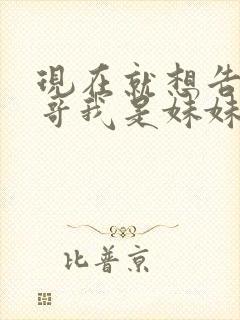 現在就想告
哥我是妹妹
比普京